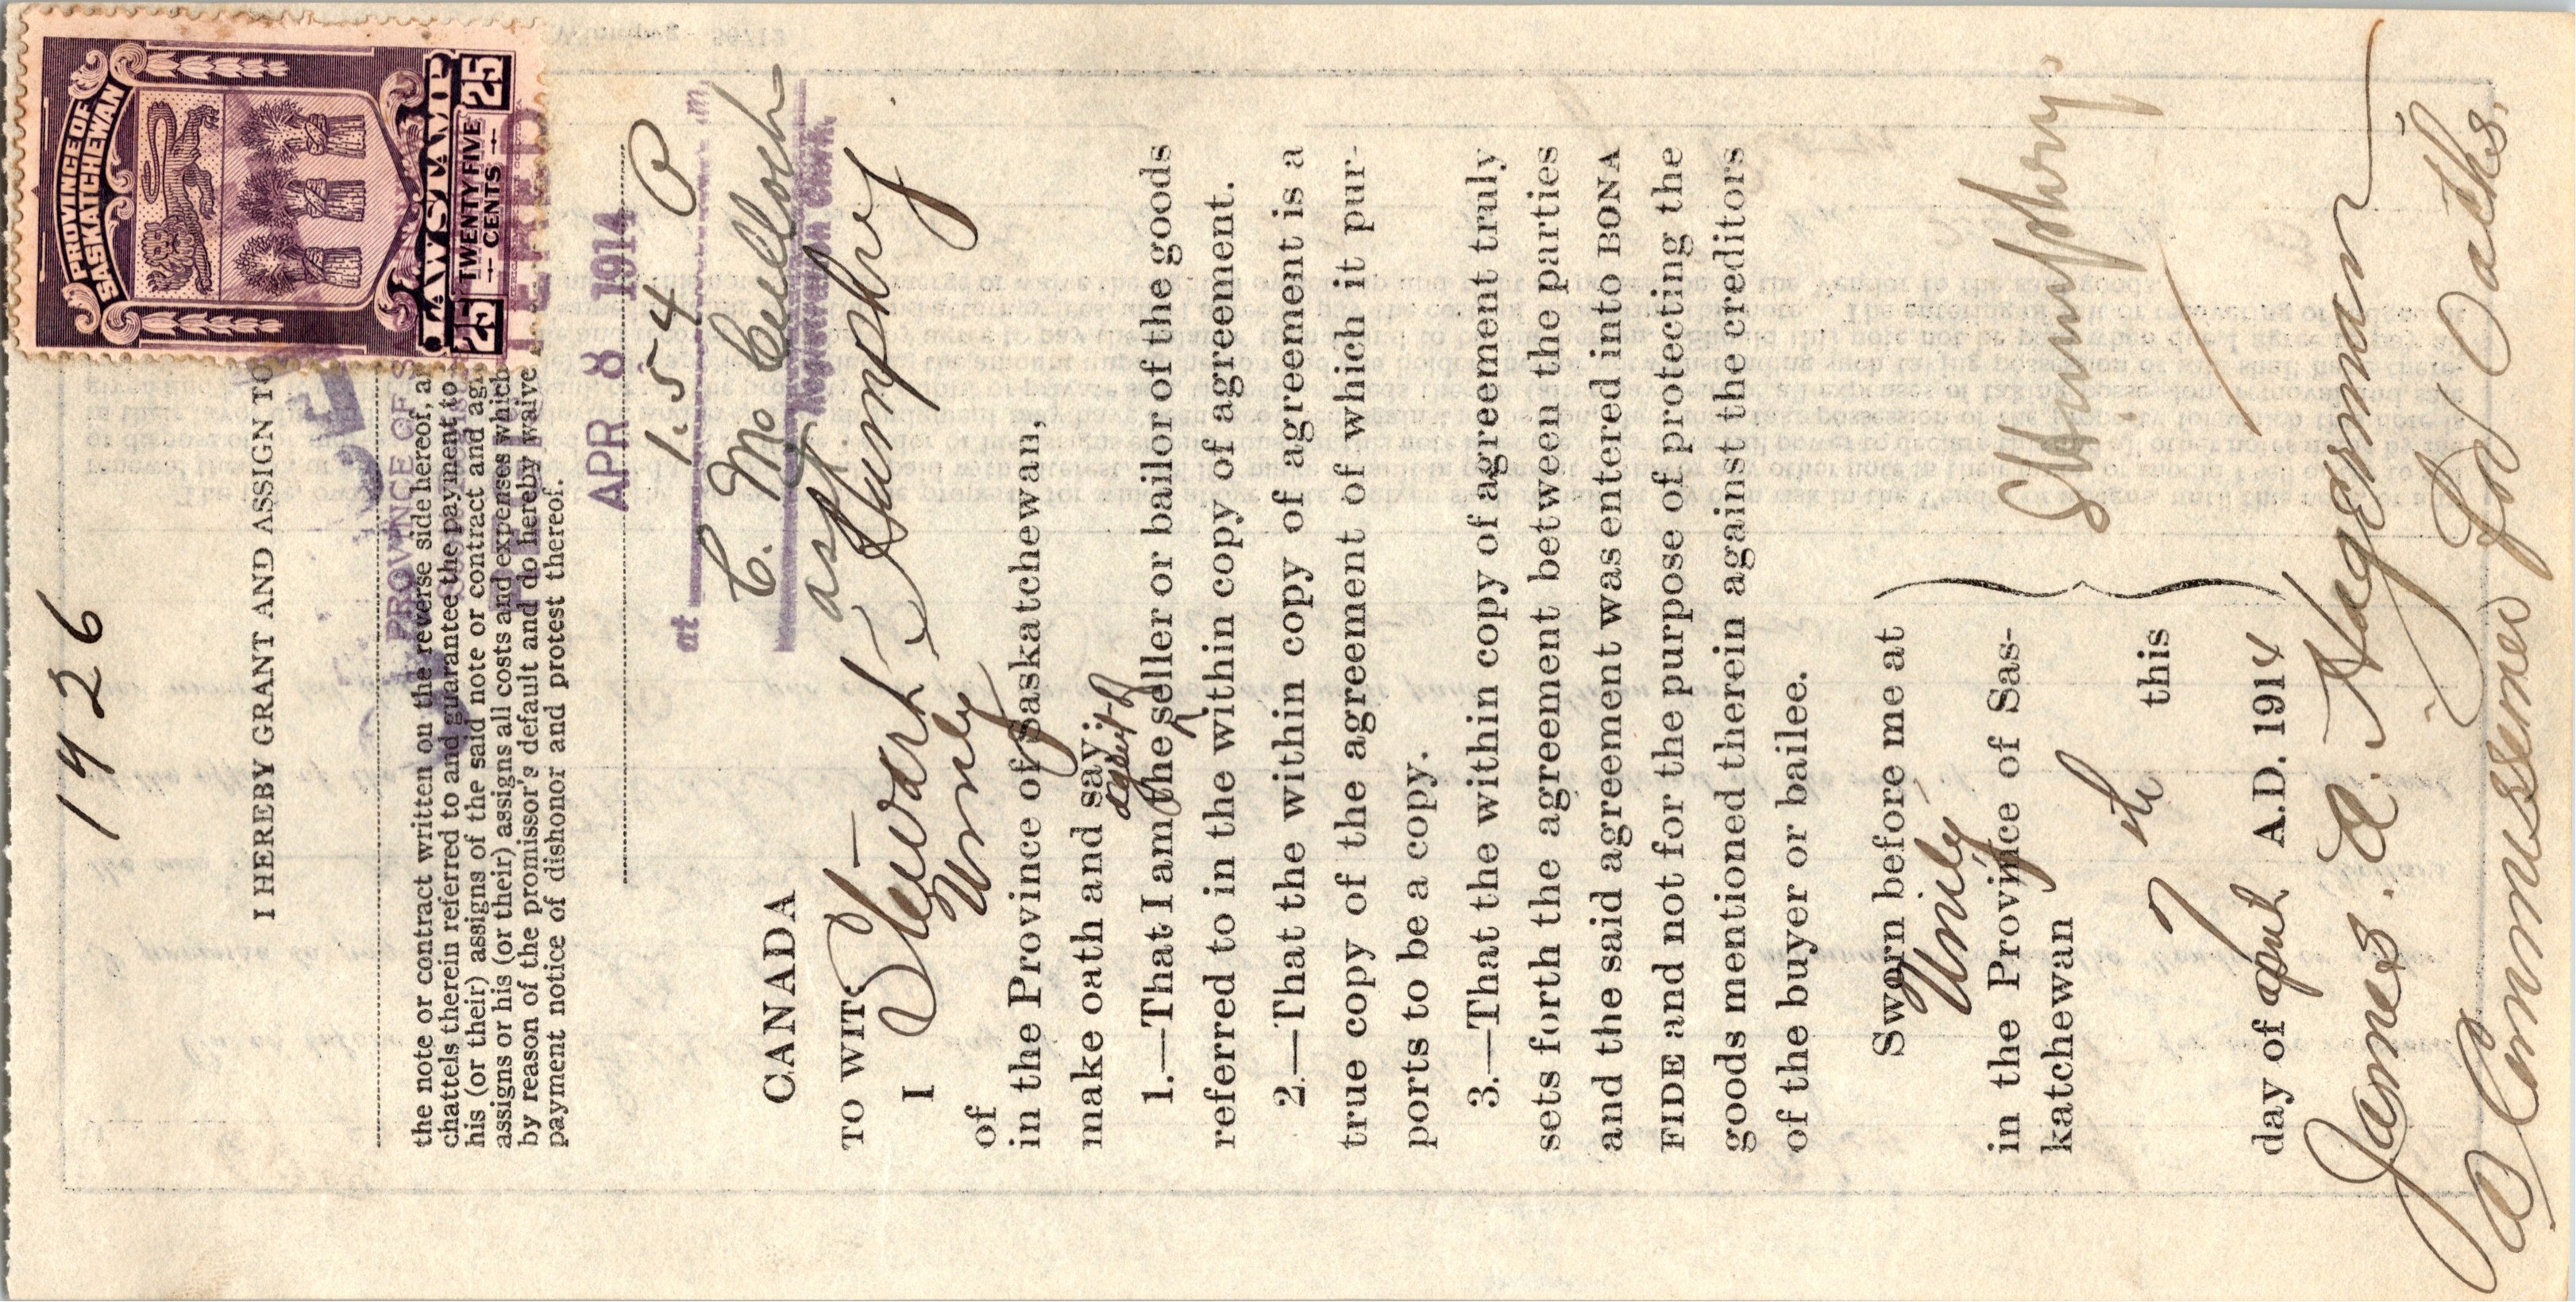 1426
PROVINCE OF
SASKATCHEWAN
LAW STAMP
25 TWENTY FIVE 25
CENTS
I HEREBY GRANT AND ASSIGN TO
PROVINCE OF S
the note or contract written on the reverse side hereof, a
chattels therein referred to and guarantee the payment to
his (or their) assigns of the said note or contract and ag
assigns or his (or their) assigns all costs and expenses which
by reason of the promissor's default and do hereby waive
payment notice of dishonor and protest thereof.
APR 8 1914
at 1.54 P m,
C. McCulloch
Registration Clerk.
CANADA
TO WIT:
I Stewart Humphrey
of Unity
in the Province of Saskatchewan,
make oath and say:
1.—That I am the agent of seller or bailor of the goods
referred to in the within copy of agreement.
2.—That the within copy of agreement is a
true copy of the agreement of which it pur-
ports to be a copy.
3.—That the within copy of agreement truly
sets forth the agreement between the parties
and the said agreement was entered into BONA
FIDE and not for the purpose of protecting the
goods mentioned therein against the creditors
of the buyer or bailee.
Sworn before me at
Unity
in the Province of Sas-
katchewan
SHumphrey
7th this
day of april A.D. 1914
James. A. Hagerman
A Commissioner For Oaths.